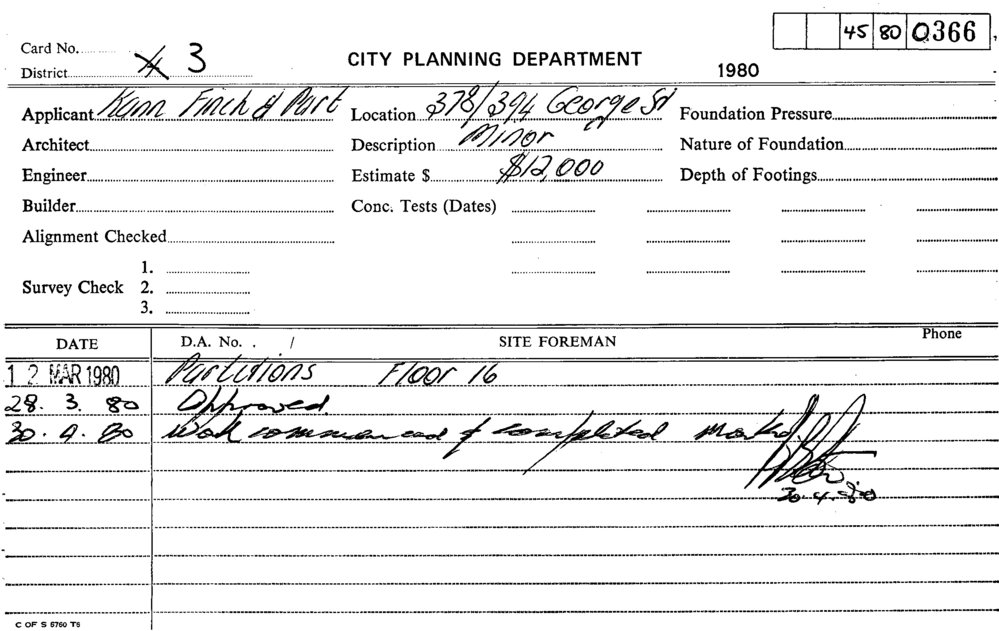 45 80 0366
Card No.
District 4 3
CITY PLANNING DEPARTMENT
1980
Applicant Kann Finch & Part Location 378/394 George St Foundation Pressure
Architect Description Minor Nature of Foundation
Engineer Estimate $ $12,000 Depth of Footings
Builder Conc. Tests (Dates)
Alignment Checked
1.
Survey Check 2.
3.
DATE D.A. No. . / SITE FOREMAN Phone
12 MAR 1980 Partitions Floor 16
28. 3. 80 Approved.
30. 4. 80 Work commenced & completed
30.4.80
C OF S 5760 T6